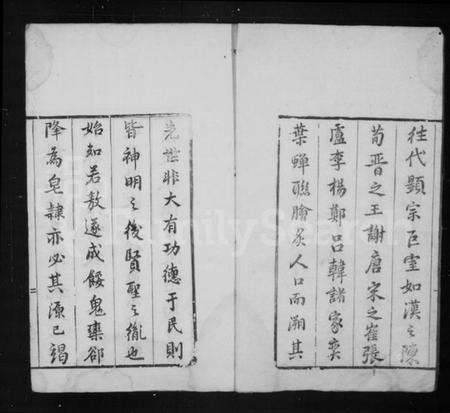 往代顯宗巨室如漢之陳
荀晋之王謝唐宋之崔張
盧李楊鄭呂韓諸家奕
葉蟬聯膾炙人口而溯其
先世非大有功德于民則
皆神明之後賢聖之胤也
始如若敖遂成餒鬼欒郤
降為皂隷亦必其源已竭
二
FamilySearch